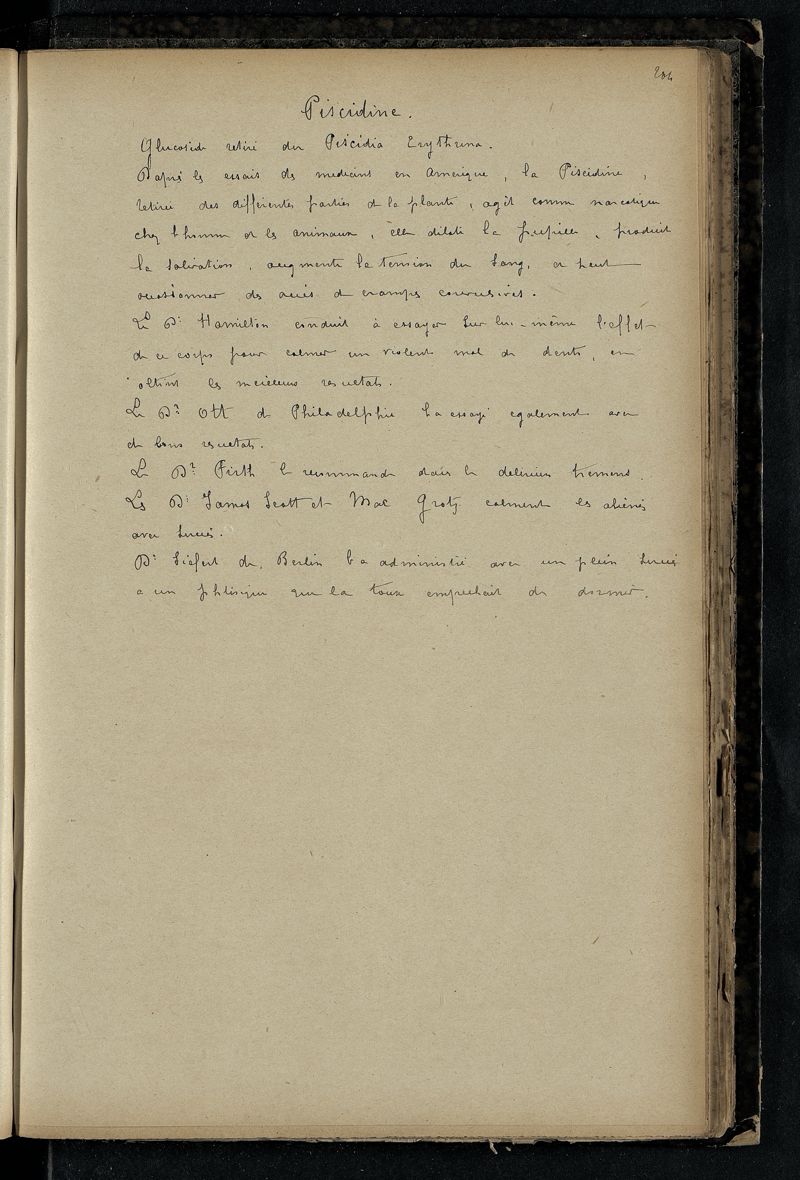 204
Piscidine.
Glucoside retiré du Piscidia Erythrina.
D'après les essais des medecins en Amerique, la Piscidine,
retirée des différentes parties de la plante, agit comme narcotique
chez l'homme et les animaux, elle dilate la pupille, produit
la salivation, augmente la tension du sang, et peut
occasionner des accès de crampes convulsives.
Le Dr Hamilton conduit à essayer sur lui-même l'effet
de ce corps pour calmer un violent mal de dents, en
obtint les meilleurs resultats.
Le Dr Ott de Philadelphie l'a essayé egalement avec
de bons resultats.
Le Dr Firth le recommande dans le delirium tremens.
Les Dr James Scott et Mac Grotz calment les aliénés
avec succès.
Dr Siefert de Berlin l'a administré avec un plein succès
a un phtisique que la toux empechait de dormir.